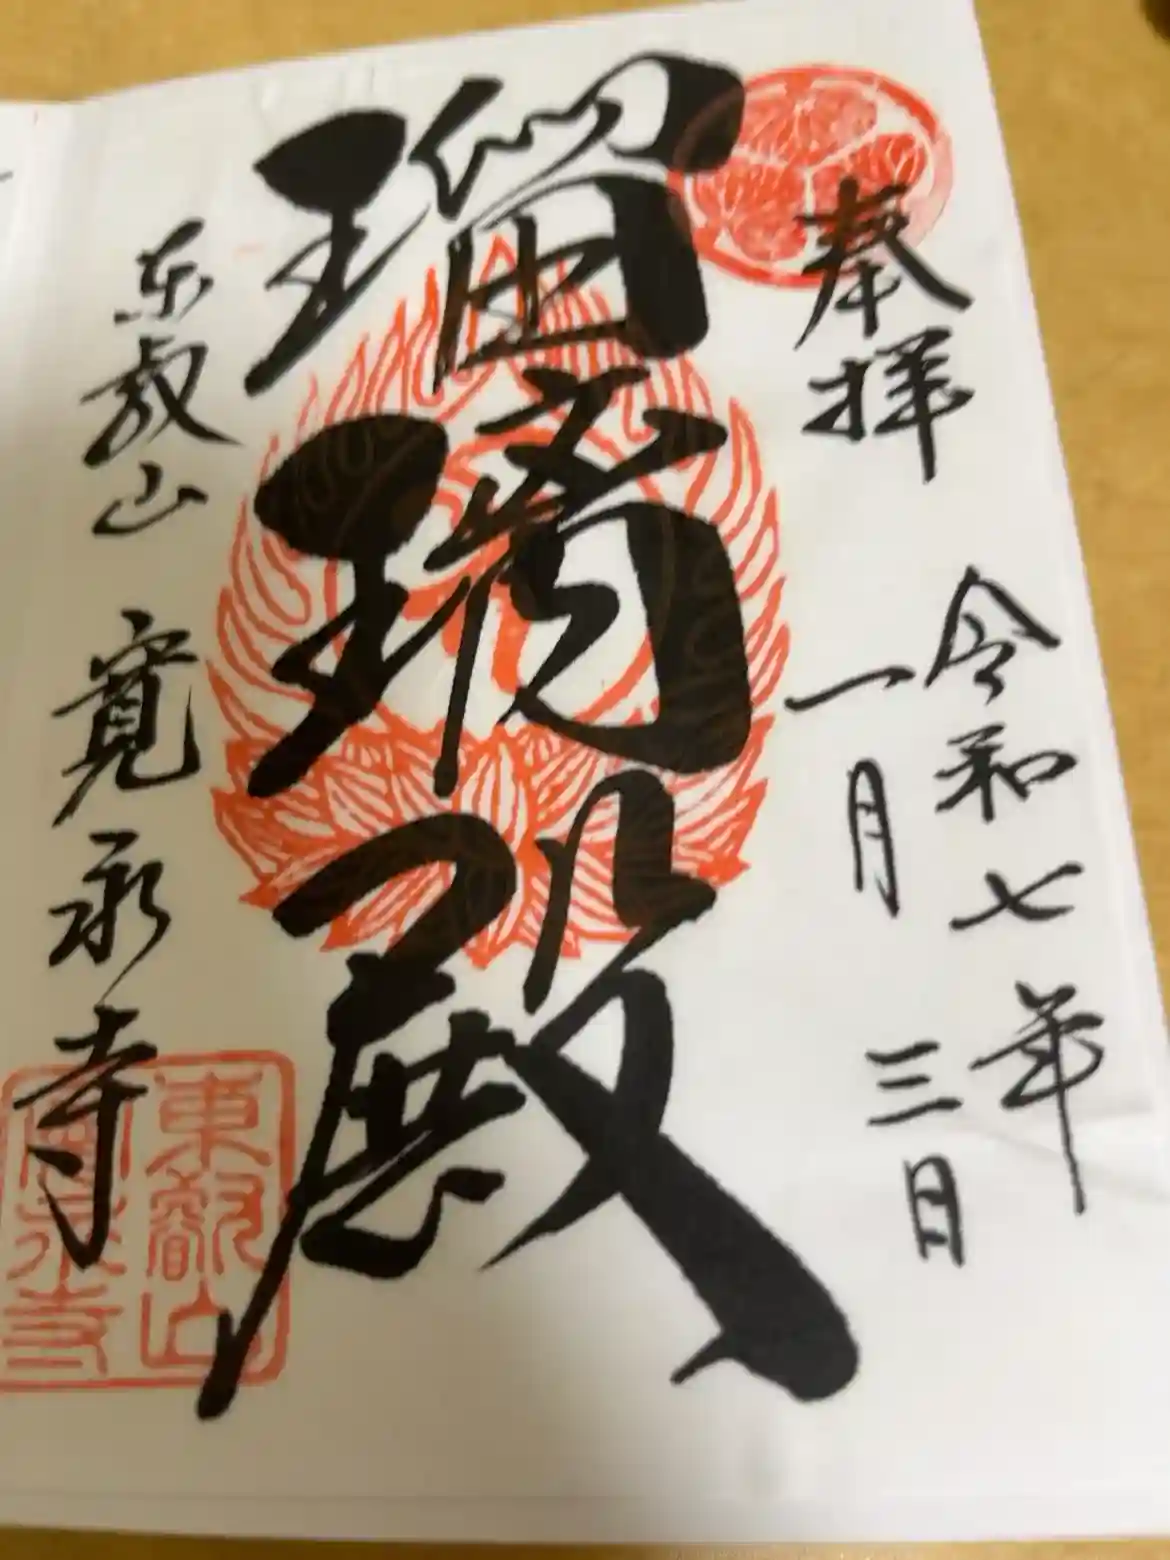 奉拝
令和七年
一月三日
瑠璃殿
东叡山 寛永寺
東叡山
寛永寺